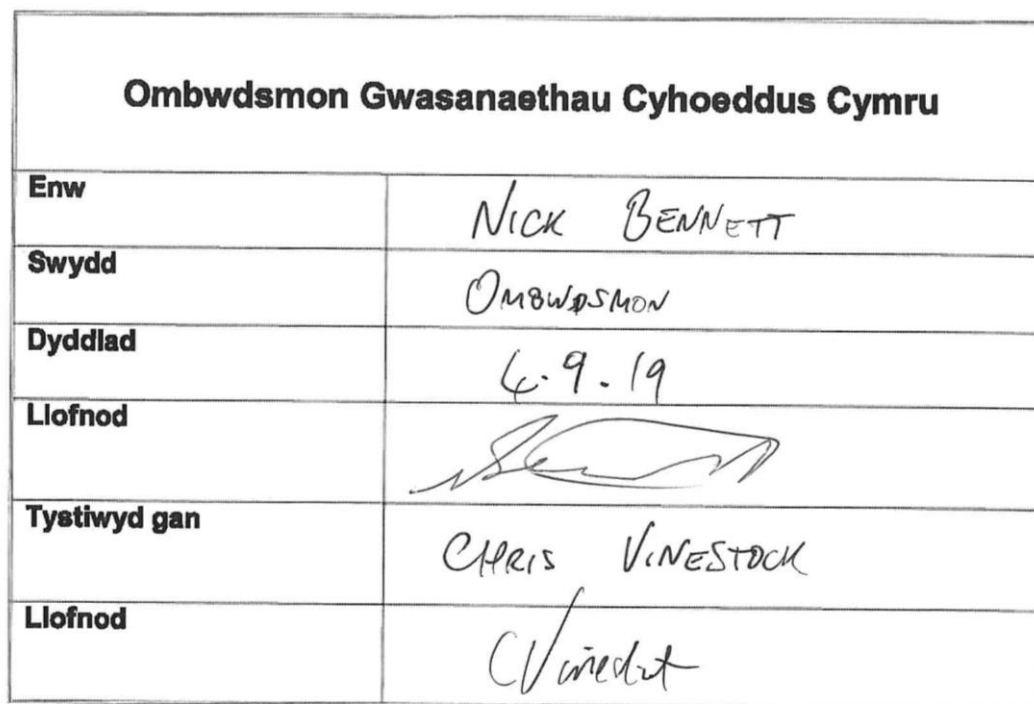 Ombwdsmon Gwasanaethau Cyhoeddus Cymru
Enw NICK BENNETT
Swydd OMBWDSMON
Dyddiad 4.9.19
Llofnod
Tystiwyd gan CHRIS VINESTOCK
Llofnod CVinestock